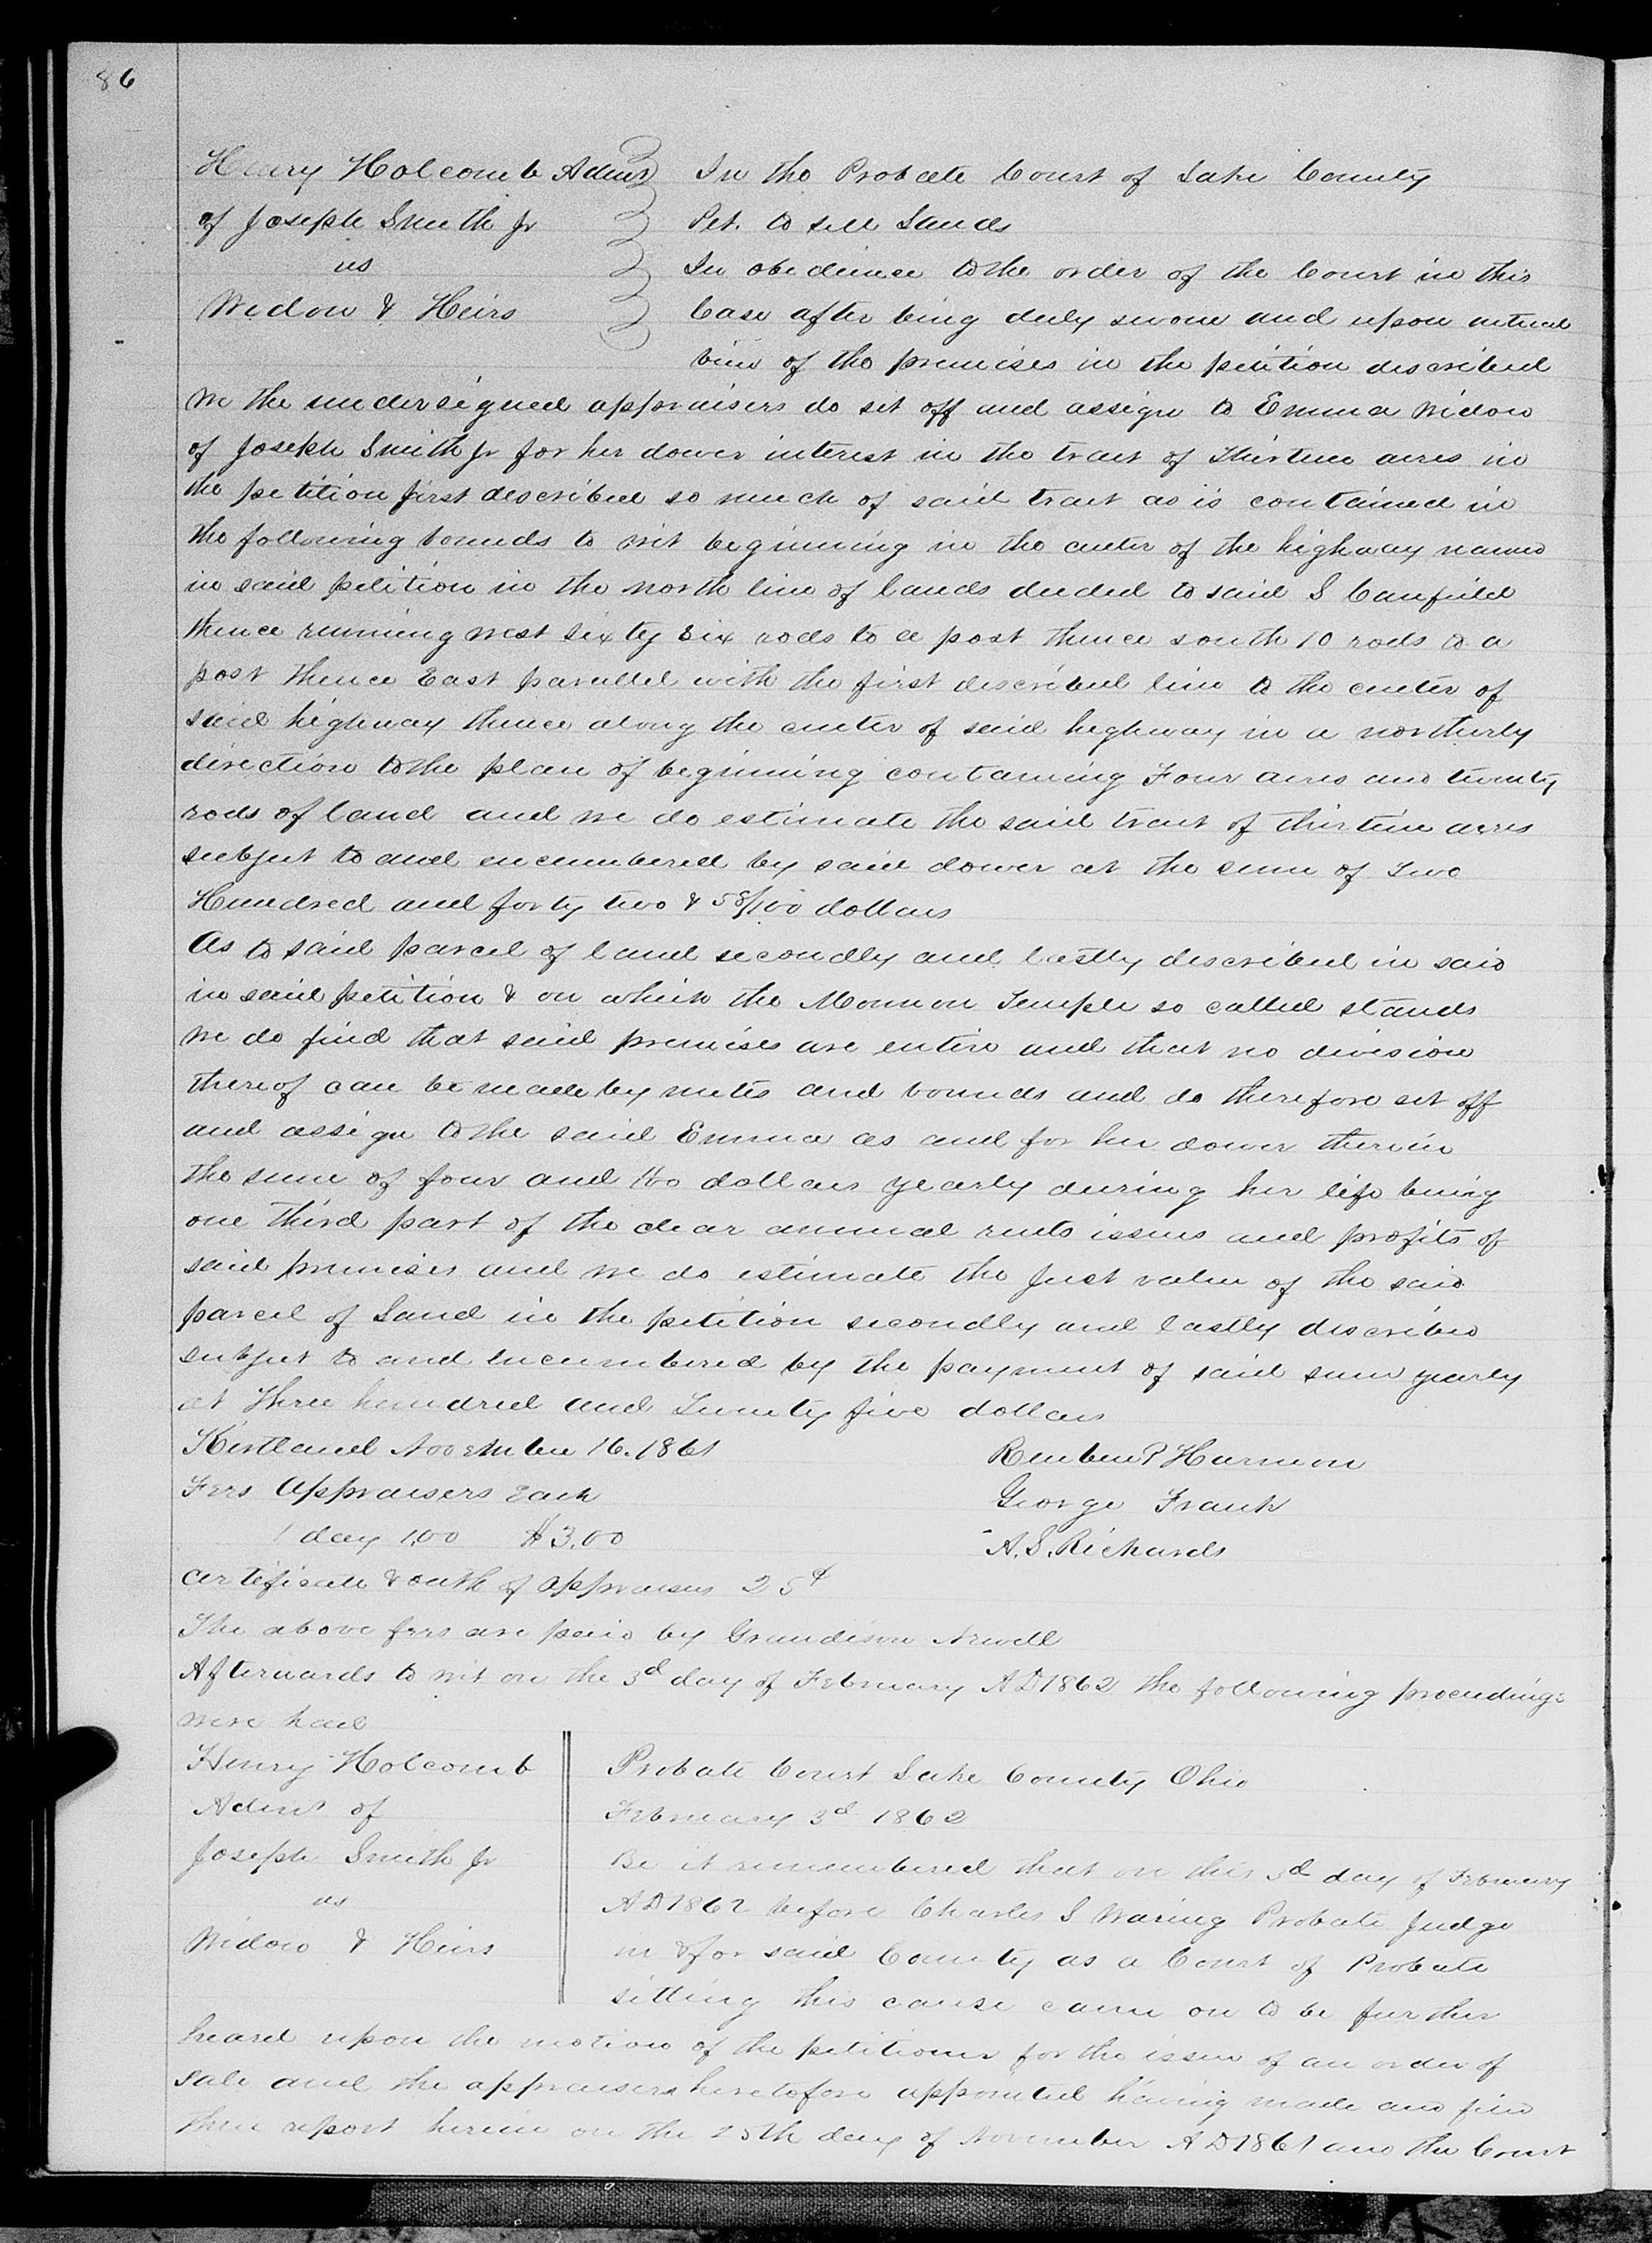 86
Henry Holcomb Admr
of Joseph Smith Jr
vs
Widow & Heirs
In the Probate Court of Lake County
Pet. to sell Lands
In obedience to the order of the Court in this
Case after being duly sworn and upon actual
view of the premises in the petition described
We the undersigned appraisers do set off and assign to Emma widow
of Joseph Smith Jr for her dower interest in the tract of Thirteen acres in
the petition first described so much of said tract as is contained in
the following bounds to wit beginning in the center of the highway named
in said petition in the north line of lands deeded to said S Canfield
thence running west sixty six rods to a post thence south 10 rods to a
post thence East parallel with the first described line to the center of
said highway thence along the center of said highway in a northerly
direction to the place of beginning containing Four acres and twenty
rods of land and we do estimate the said tract of thirteen acres
subject to and encumbered by said dower at the sum of Two
Hundred and forty two & 58/100 dollars
As to said parcel of land secondly and lastly described in said
in said petition & on which the Mormon Temple so called stands
we do find that said premises are entire and that no division
thereof can be made by metes and bounds and do therefore set off
and assign to the said Emma as and for her dower therein
the sum of four and /100 dollars yearly during her life being
one third part of the clear annual rents issues and profits of
said premises and we do estimate the just value of the said
parcel of Land in the petition secondly and lastly described
subject to and encumbered by the payment of said sum yearly
at three hundred and Twenty five dollars
Kirtland November 16. 1861
Fees Appraisers Each
1 day 1,00 $3.00
Reuben P Harmon
George Frank
A. S. Richards
certificate & oath of appraisers 25¢
The above fees are paid by Grandison Newell
Afterwards to wit on the 3d day of February AD 1862 the following proceedings
were had
Henry Holcomb
Admr of
Joseph Smith Jr
vs
Widow & Heirs
Probate Court Lake County Ohio
February 3d 1862
Be it remembered that on this 3d day of February
AD 1862 before Charles S Waring Probate Judge
in & for said County as a Court of Probate
sitting this cause came on to be further
heard upon the motion of the petitioner for the issue of an order of
Sale and the appraisers heretofore appointed having made and filed
their report herein on the 25th day of November AD 1861 and the Court